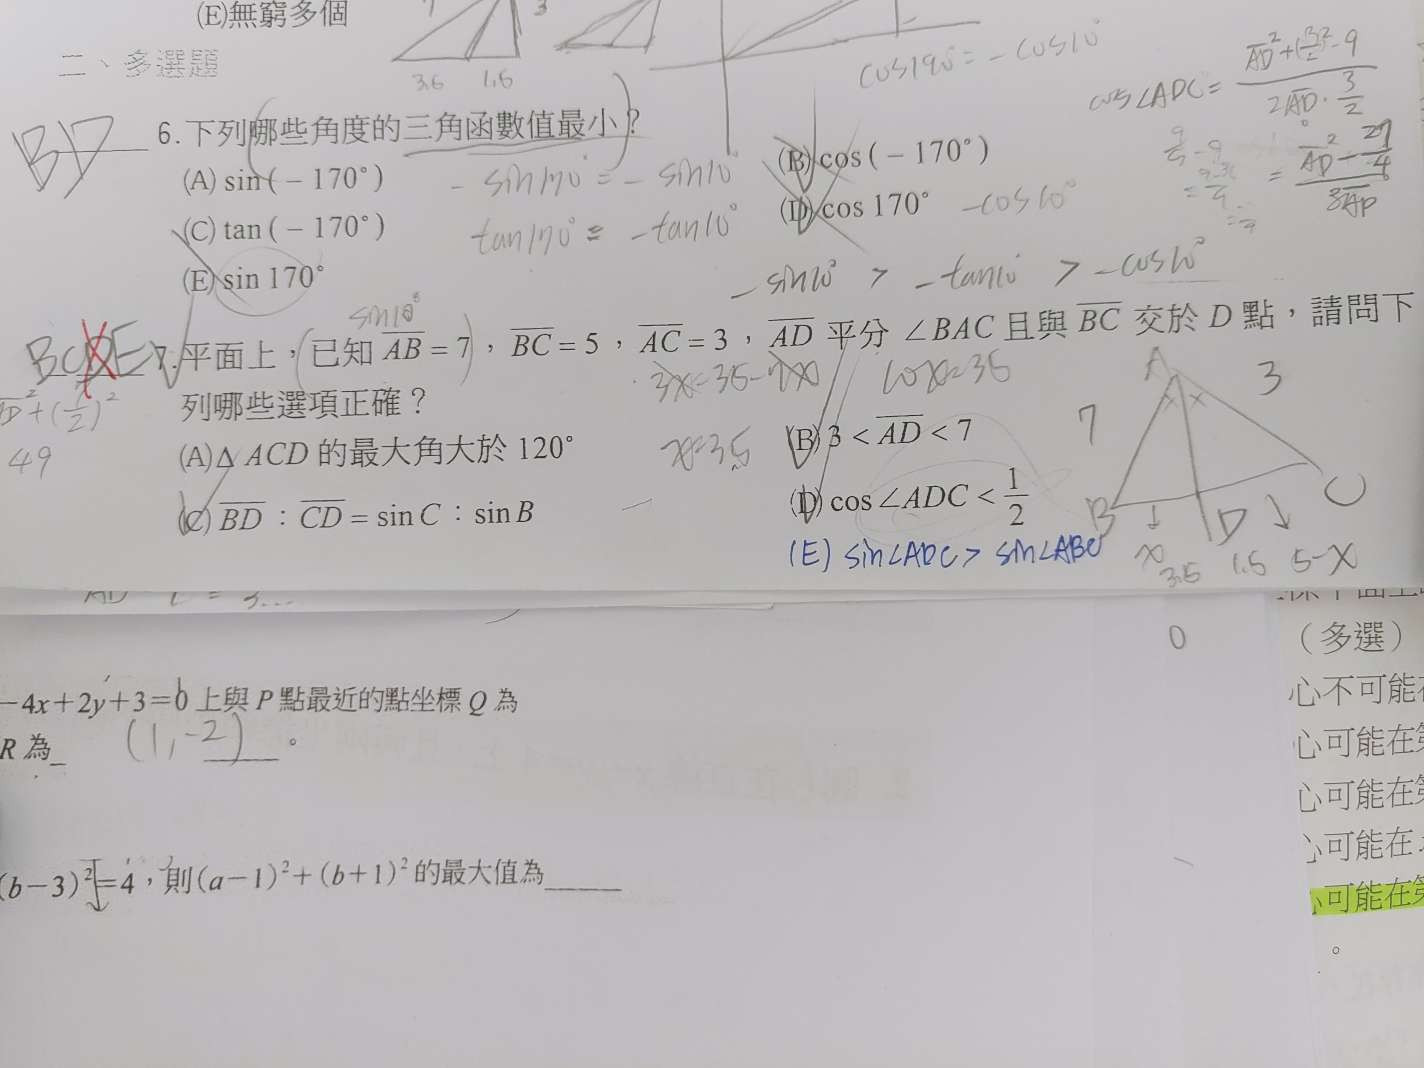 (E)無窮多個
3
3.5 1.5
二、多選題
cos190°=-cos10°
cos∠ADC= AD²+(3/2)²-9 / 2AD·3/2
= AD²-27/4 / 3AD
BD 6.下列哪些角度的三角函數值最小?
(A) sin(-170°) -sin170°=-sin10° (B) cos(-170°)
(C) tan(-170°) tan170°=-tan10° (D) cos 170° -cos10°
(E) sin 170°
-sin10° > -tan10° > -cos10°
sin10°
BCE 7.平面上,已知 AB=7,BC=5,AC=3,AD 平分 ∠BAC 且與 BC 交於 D 點,請問下
列哪些選項正確?
3x=35-7x 10x=35
x=3.5
49
(A)△ ACD 的最大角大於 120° (B) 3<AD<7
(C) BD:CD=sin C:sin B (D) cos∠ADC<1/2
(E) sin∠ADC>sin∠ABC
A 3
7
B D C
x 3.5 1.5 5-x
-4x+2y+3=0 上與 P 點最近的點坐標 Q 為
R 為_ (1,-2)。
(b-3)²=4,則(a-1)²+(b+1)²的最大值為
0
(多選)
心不可能在
心可能在第
心可能在第
心可能在
心可能在第
。